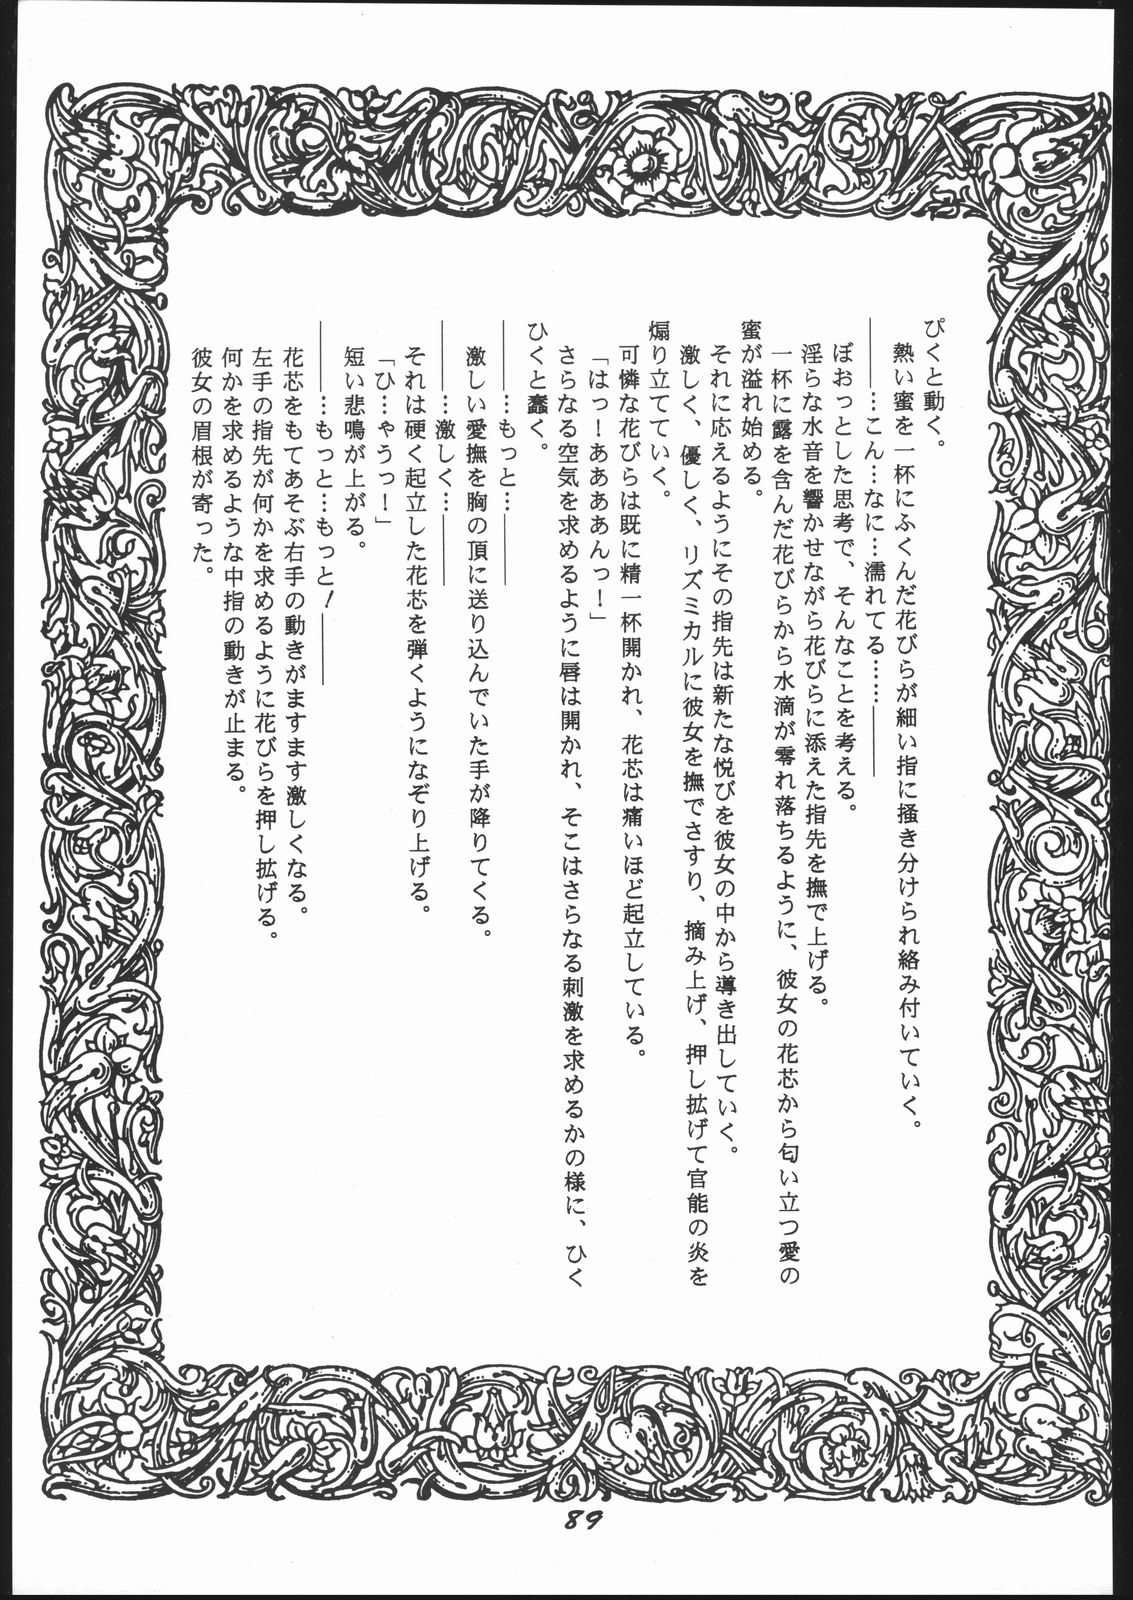 ぴくと動く。
熱い蜜を一杯にふくんだ花びらが細い指に掻き分けられ絡み付いていく。
――…こん…なに…濡れてる……――
ぼおっとした思考で、そんなことを考える。
淫らな水音を響かせながら花びらに添えた指先を撫で上げる。
一杯に露を含んだ花びらから水滴が零れ落ちるように、彼女の花芯から匂い立つ愛の
蜜が溢れ始める。
それに応えるようにその指先は新たな悦びを彼女の中から導き出していく。
激しく、優しく、リズミカルに彼女を撫でさすり、摘み上げ、押し拡げて官能の炎を
煽り立てていく。
可憐な花びらは既に精一杯開かれ、花芯は痛いほど起立している。
「はっ！あああんっ！」
さらなる空気を求めるように唇は開かれ、そこはさらなる刺激を求めるかの様に、ひく
ひくと蠢く。
――…もっと…――
激しい愛撫を胸の頂に送り込んでいた手が降りてくる。
――…激しく…――
それは硬く起立した花芯を弾くようになぞり上げる。
「ひ…ゃうっ！」
短い悲鳴が上がる。
――…もっと…もっと！――
花芯をもてあそぶ右手の動きがますます激しくなる。
左手の指先が何かを求めるように花びらを押し拡げる。
何かを求めるような中指の動きが止まる。
彼女の眉根が寄った。
89